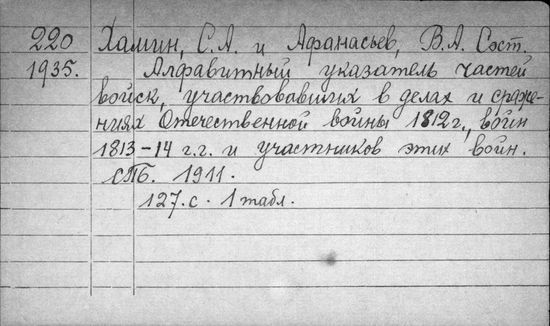 220 Хамин, С.А. и Афанасьев, В.А. Сост.
1935. Алфавитный указатель частей
войск, участвовавших в делах и сраже-
ниях Отечественной войны 1812 г., войн
1813-14 г.г. и участников этих войн.
СПБ. 1911.
127. с. 1 табл.